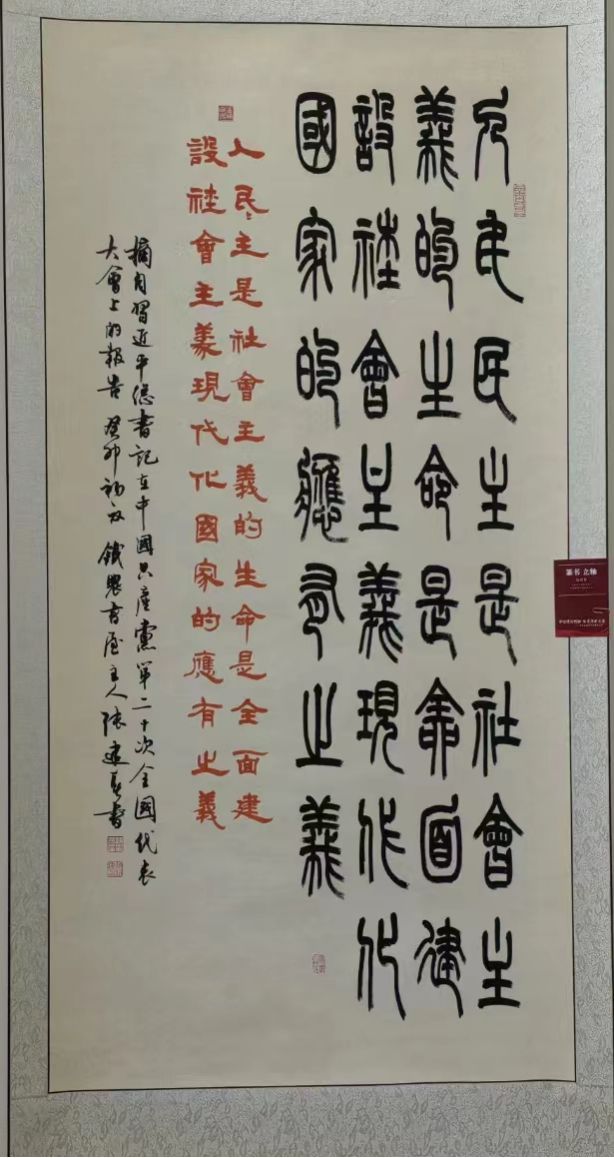 人民民主是社會主
義的生命是全面建
設社會主義現代化
國家的應有之義
人民〻主是社會主義的生命是全面建
設社會主義現代化國家的應有之義
摘自習近平總書記在中國共産黨第二十次全國代表
大會上的報告 癸卯初夏 鐵農書屋主人張建書
篆书 立轴